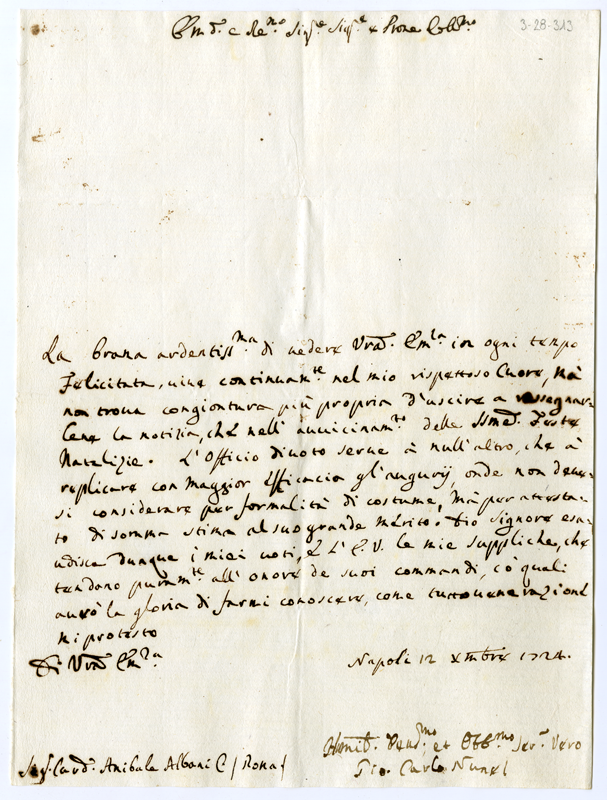 Em.^o e Re.^mo Sig.^e Sig.^e e Prone Coll.^mo
3-28-313
La brama ardentiss.^ma di uedere Vra Em.^za in ogni tempo
Felicitata, uiue continuam.^te nel mio rispettoso Cuore, Nè
non troua congiontura più propria d'uscire a rassegnar-
lene la notizia, che nell' auuicinam.^to delle SSme Feste
Natalizie. L'Officio diuoto serue à null'altro, che à
replicare con maggior Efficacia gl'augurij, onde non deue-
si considerare per formalità di costume, Mà per attesta-
to di somma stima al suo grande merito. Dio Signore esa-
udisca dunque i miei uoti, e l'E.V. le mie suppliche, che
tendono puram.^te all' onore de suoi commandi, có quali
aurò la gloria di farmi conoscere, come tutto uenerazione
mi protesto
Di Vra Em.^za
Napoli 12 Xmbre 1724.
Humil.^o Deuo.^mo et Obb.^mo Ser.^e Vero
Gio. Carlo
Sig. Card. Anibale Albani C / Roma /